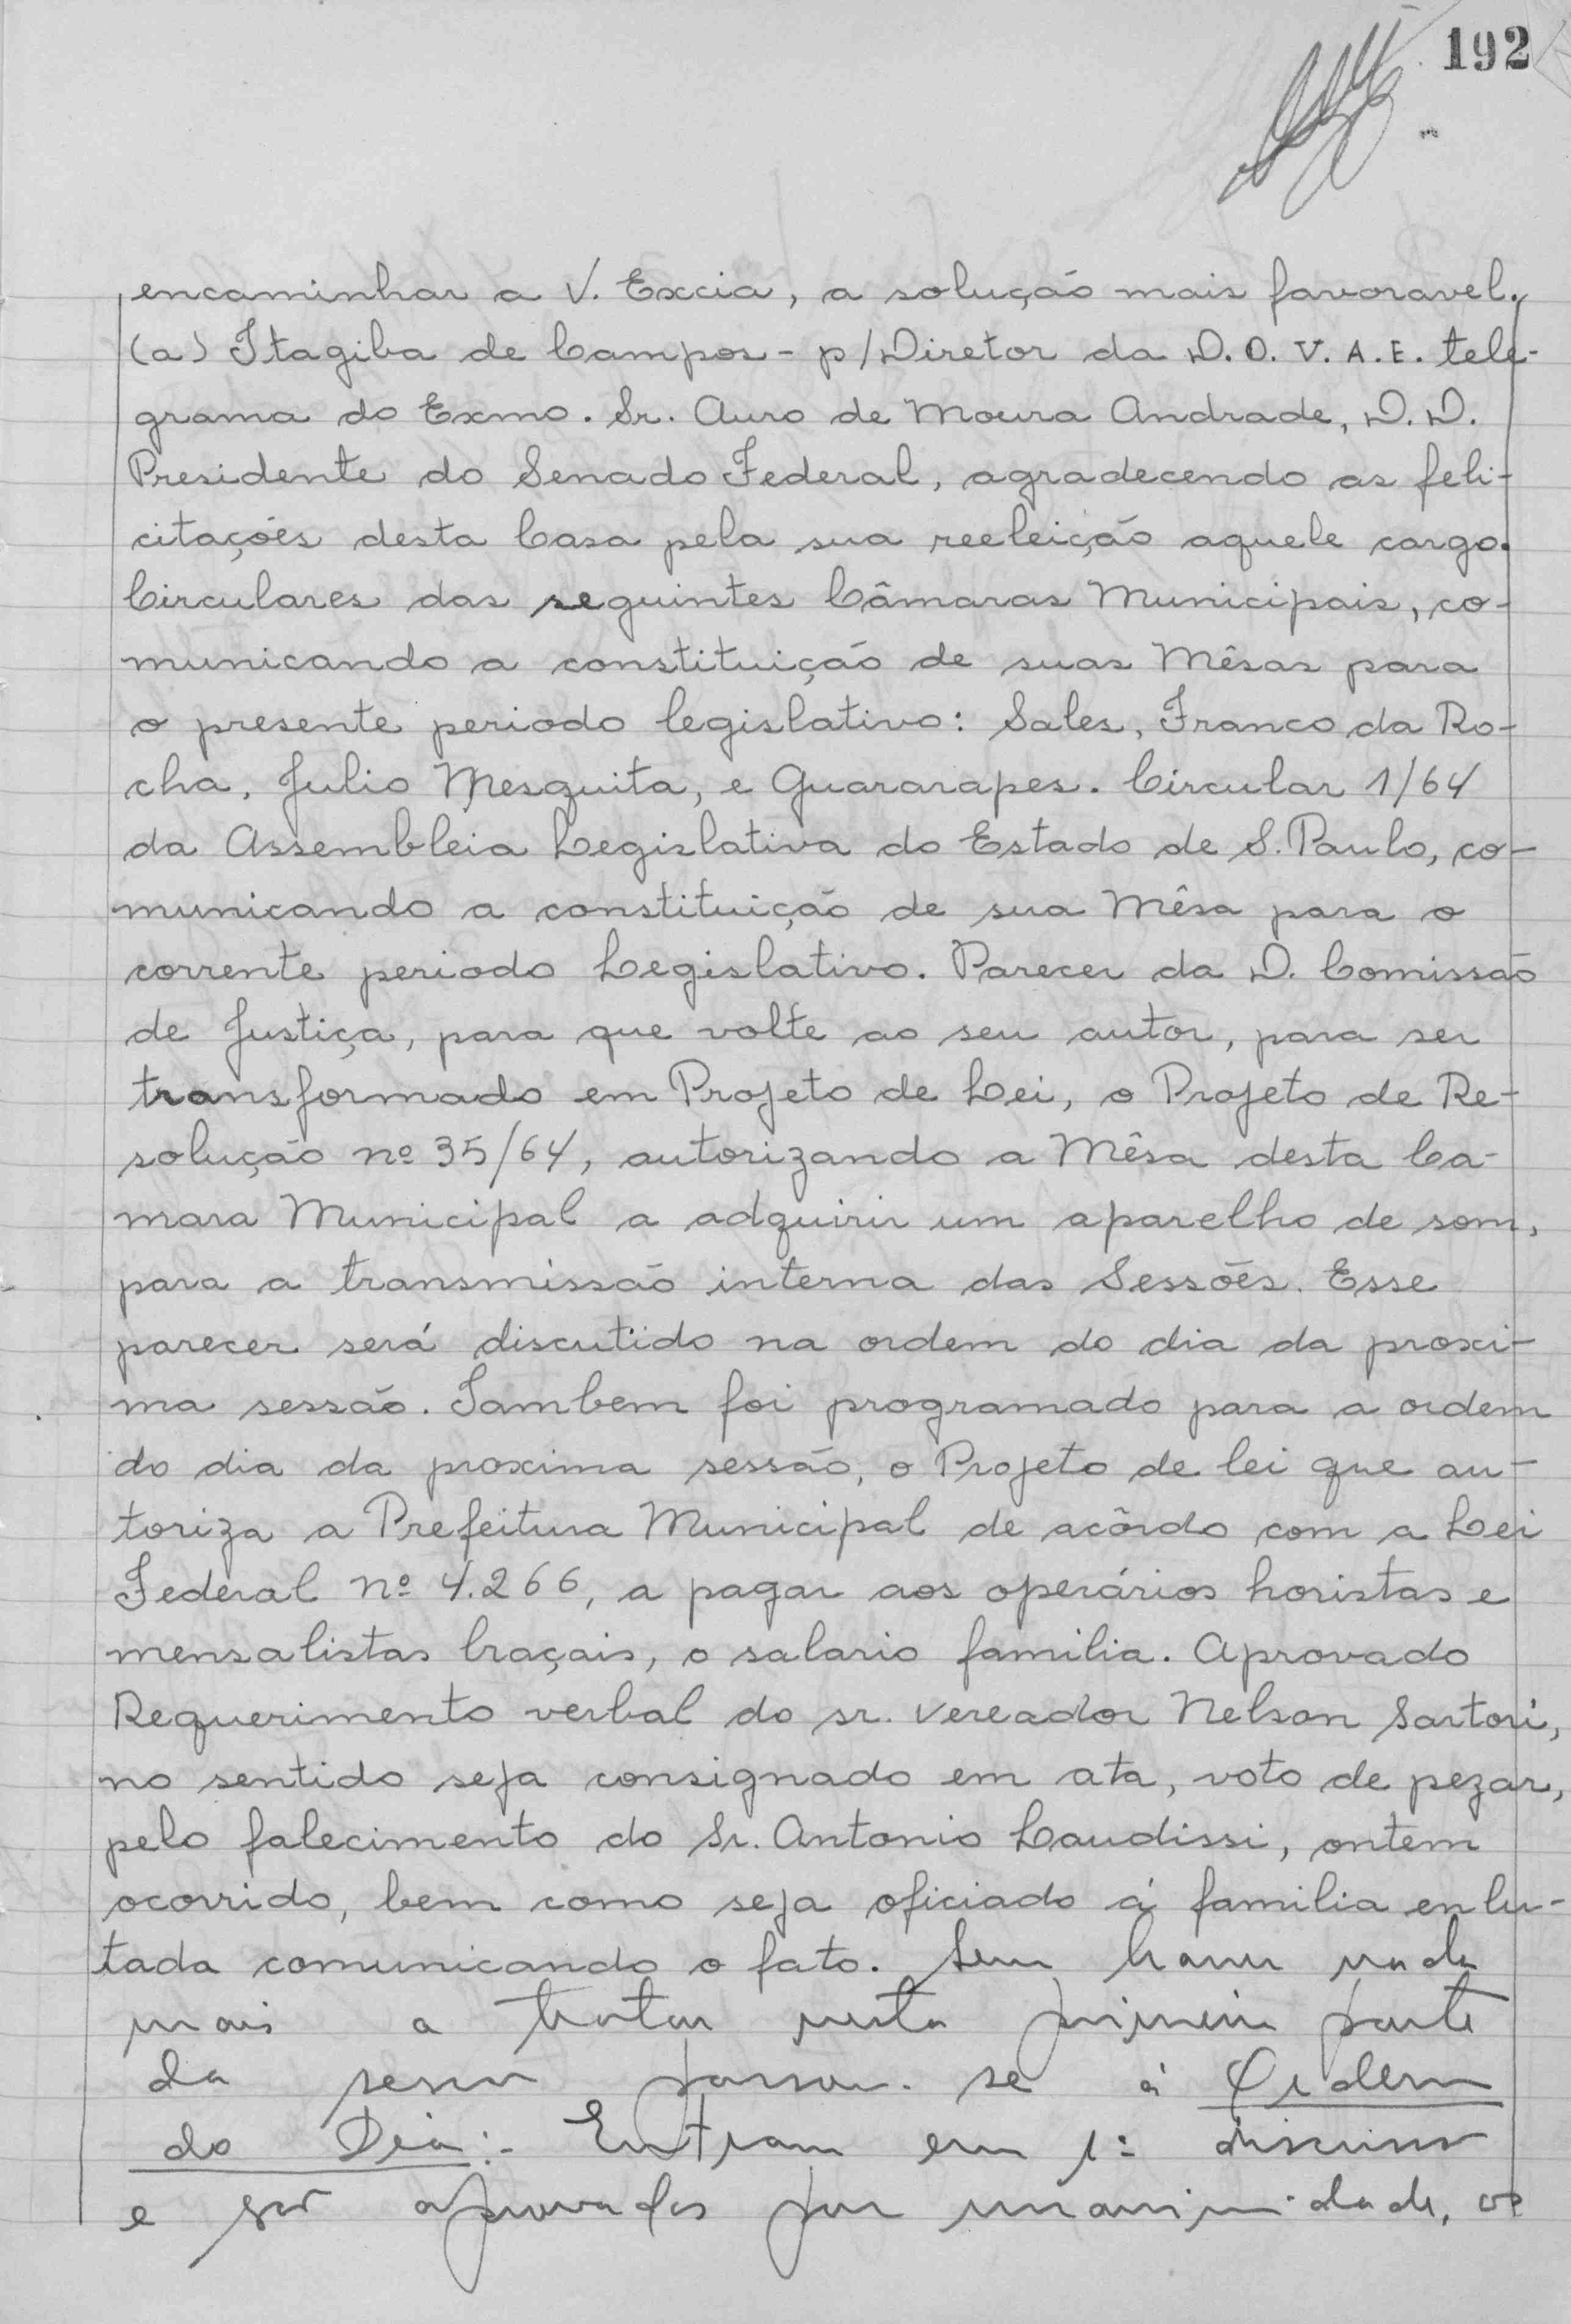 192
encaminhar a V. Excia, a solução mais favoravel.
(a) Itagiba de Campos - p/Diretor da D.O.V.A.E. tele-
grama do Exmo. Sr. Auro de Moura Andrade, D.D.
Presidente do Senado Federal, agradecendo as feli-
citações desta Casa pela sua reeleição aquele cargo.
Circulares das seguintes Câmaras Municipais, co-
municando a constituição de suas Mêsas para
o presente periodo legislativo: Sales, Franco da Ro-
cha, Julio Mesquita, e Guararapes. Circular 1/64
da Assembleia Legislativa do Estado de S. Paulo, co-
municando a constituição de sua Mêsa para o
corrente periodo Legislativo. Parecer da D. Comissão
de Justiça, para que volte ao seu autor, para ser
transformado em Projeto de Lei, o Projeto de Re-
solução nº 35/64, autorizando a Mêsa desta Ca-
mara Municipal a adquirir um aparelho de som,
para a transmissão interna das Sessões. Esse
parecer será discutido na ordem do dia da proxi-
ma sessão. Tambem foi programado para a ordem
do dia da proxima sessão, o Projeto de lei que au-
toriza a Prefeitura Municipal de acôrdo com a Lei
Federal nº 4.266, a pagar aos operários horistas e
mensalistas braçais, o salario familia. Aprovado
Requerimento verbal do sr. vereador Nelson Sartori,
no sentido seja consignado em ata, voto de pezar,
pelo falecimento do Sr. Antonio Laudissi, ontem
ocorrido, bem como seja oficiado á familia enlu-
tada comunicando o fato. Sem haver nada
mais a tratar nesta primeira parte
da sessão passou-se á Ordem
do Dia:- Entram em 1ª discussão
e são aprovados por unanimidade, os